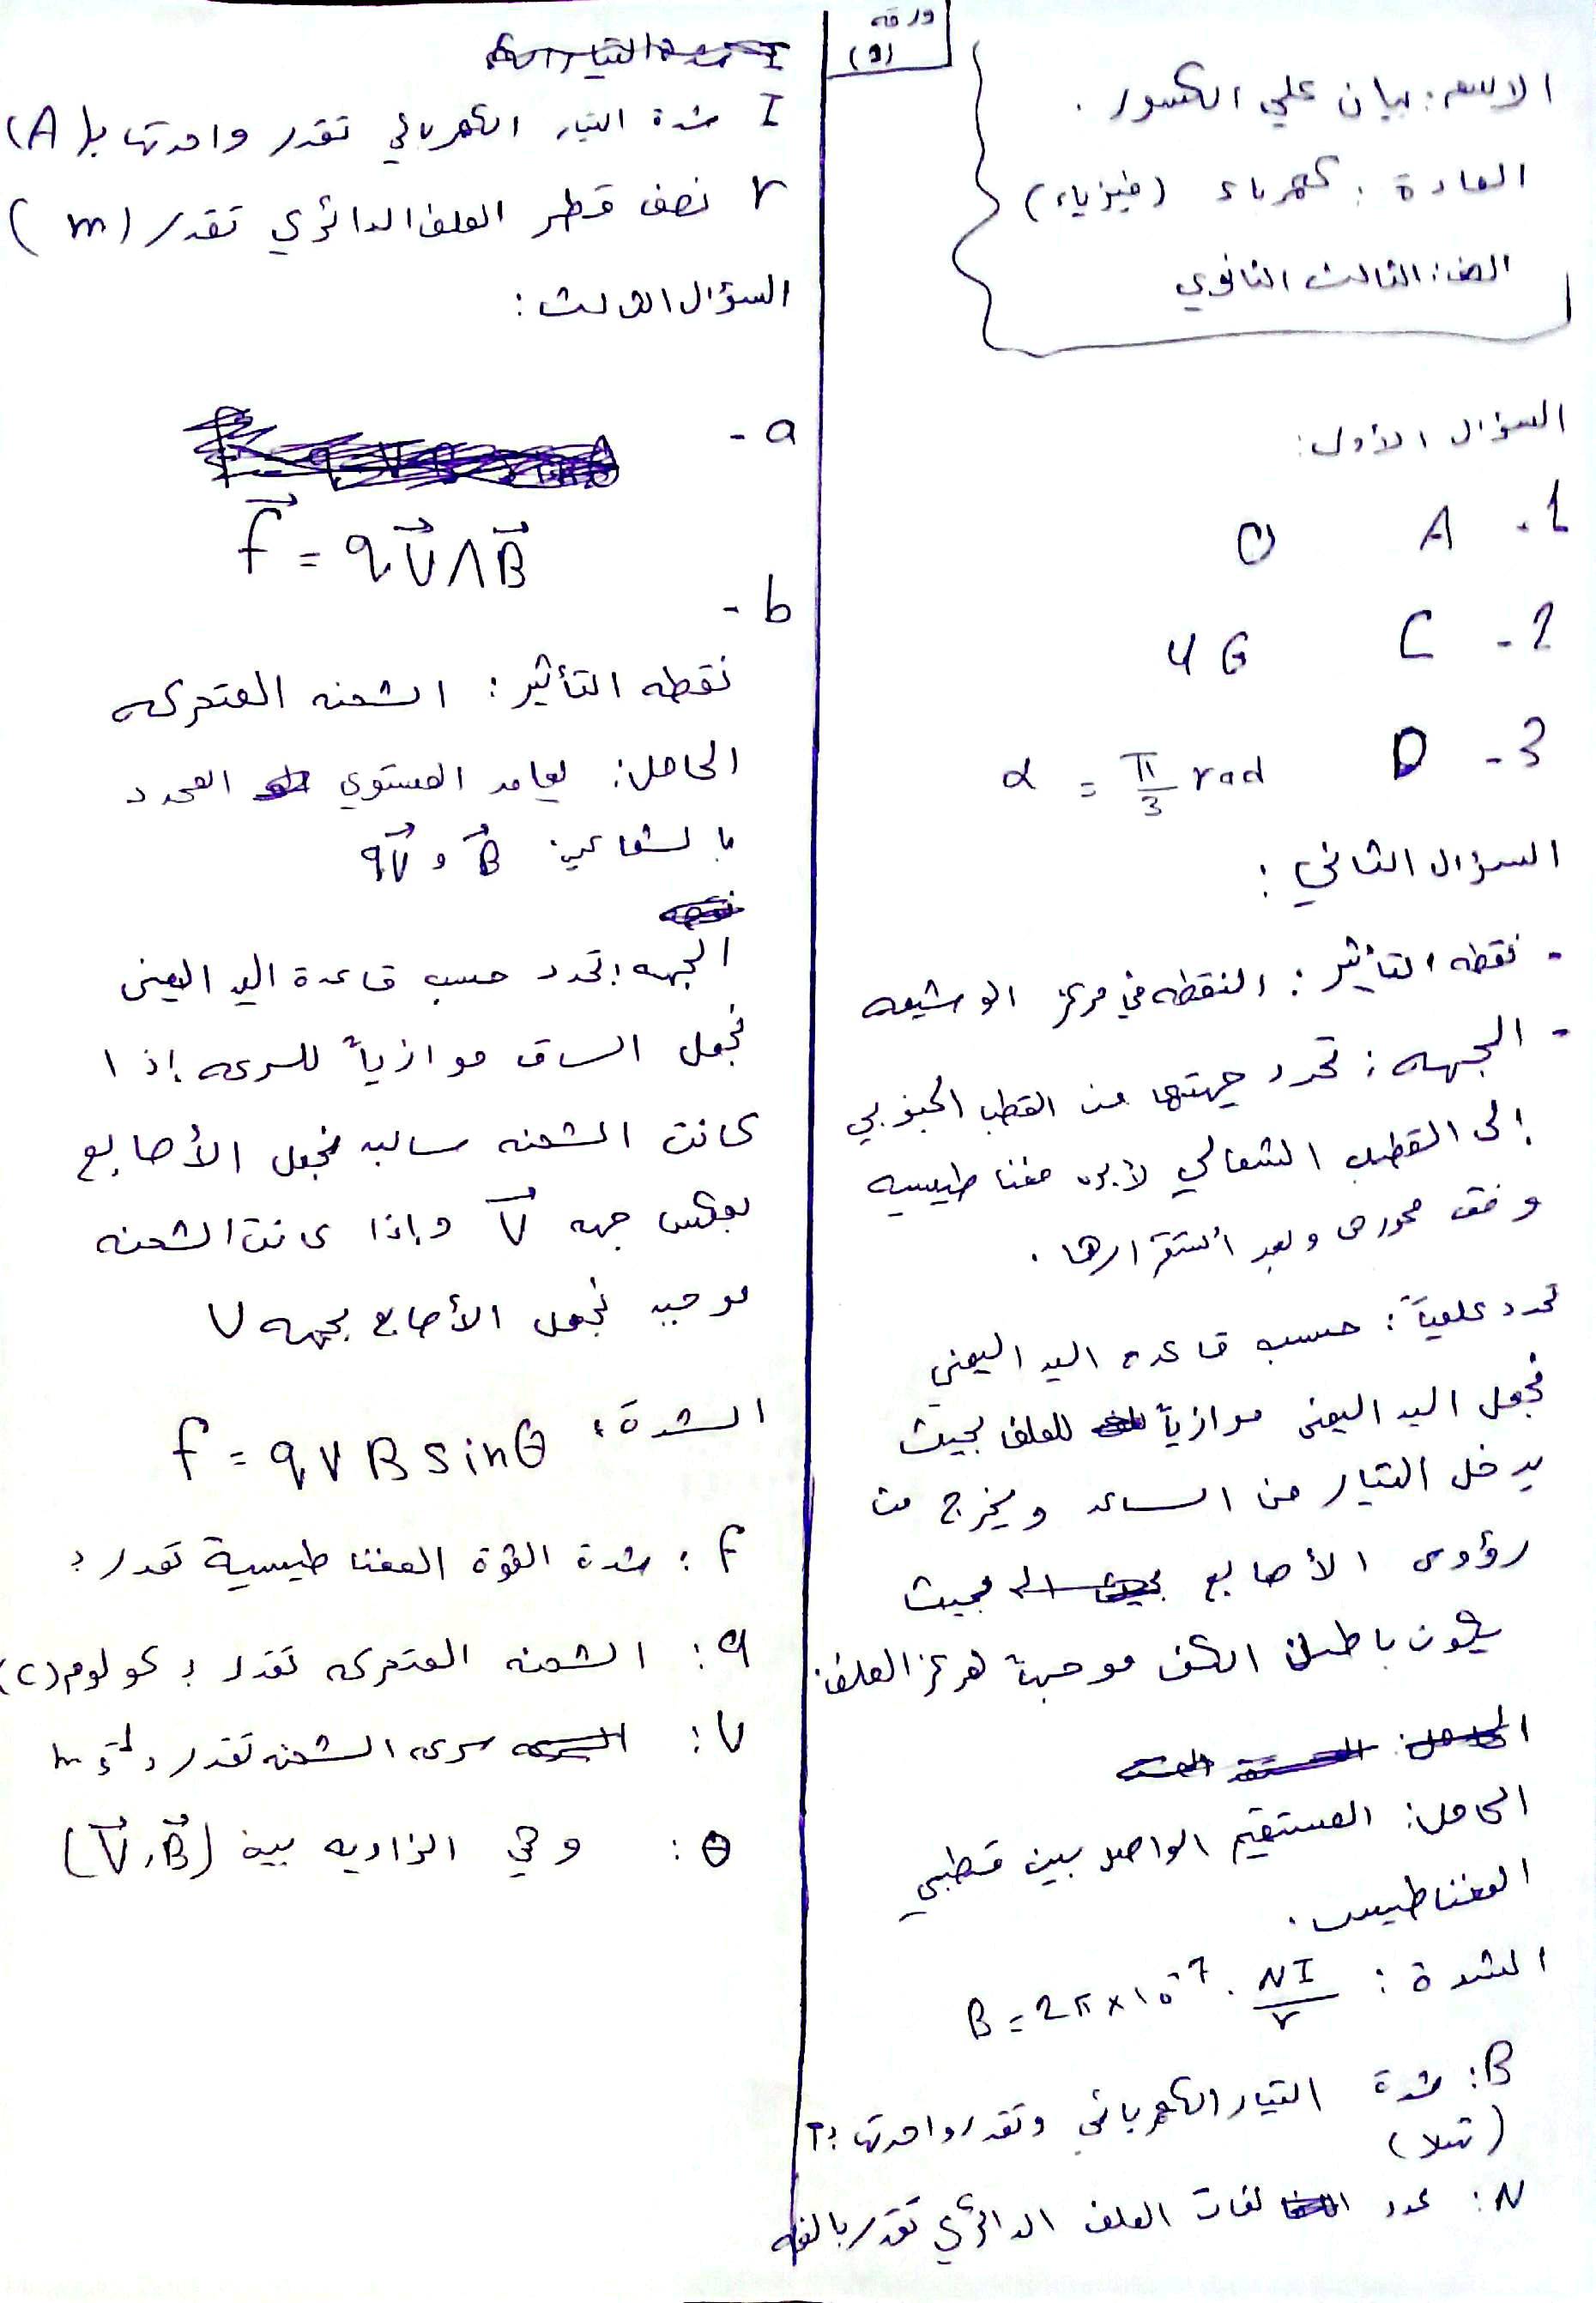 ورقة
(1)
الاسم: بيان علي الكسور .
المادة : كهرباء (فيزياء)
الصف: الثالث الثانوي
السؤال الأول:
1- A O
2- C 4G
3- D α = π/3 rad
السؤال الثاني :
- نقطه التأثير : النقطه في مركز الوشيعه
- الجهه : تحدد جهتها من القطب الجنوبي
إلى القطب الشمالي لأبره مغناطيسيه
وفق محورها وبعد استقرارها .
تحدد عملياً : حسب قاعده اليد اليمنى
نجعل اليد اليمنى موازياً للملف بحيث
يدخل التيار من الساعد ويخرج من
رؤوس الأصابع بحيث
يكون باطن الكف موجهة لمركز الملف.
الحامل: المستقيم الواصل بين قطبي
المغناطيس .
الشدة : B = 2π×10⁻⁷ . NI/r
B: شدة التيار الكهربائي وتقدر واحدتها بـ T
(تسلا)
N: عدد لفات الملف الدائري تقدر بالفه
I شدة التيار الكهربائي تقدر واحدتها بـ (A)
r نصف قطر الملف الدائري تقدر (m)
السؤال الثالث :
a -
f⃗ = qv⃗ Λ B⃗
b -
نقطه التأثير : الشحنه المتحركه
الحامل: يعامد المستوي المحدد
بالشعاعين B⃗ و qv⃗
الجهه: تحدد حسب قاعدة اليد اليمنى
نجعل الساق موازياً للسرعه إذا
كانت الشحنه سالبه نجعل الأصابع
بعكس جهه v⃗ وإذا كانت الشحنه
موجبه نجعل الأصابع بجهه v
الشدة: f = qvB sinθ
f : شدة القوة المغناطيسية تقدر بـ
q : الشحنه المتحركه تقدر بـ كولوم (c)
v : سرعه الشحنه تقدر بـ m s⁻¹
θ : وهي الزاويه بين (v⃗, B⃗)